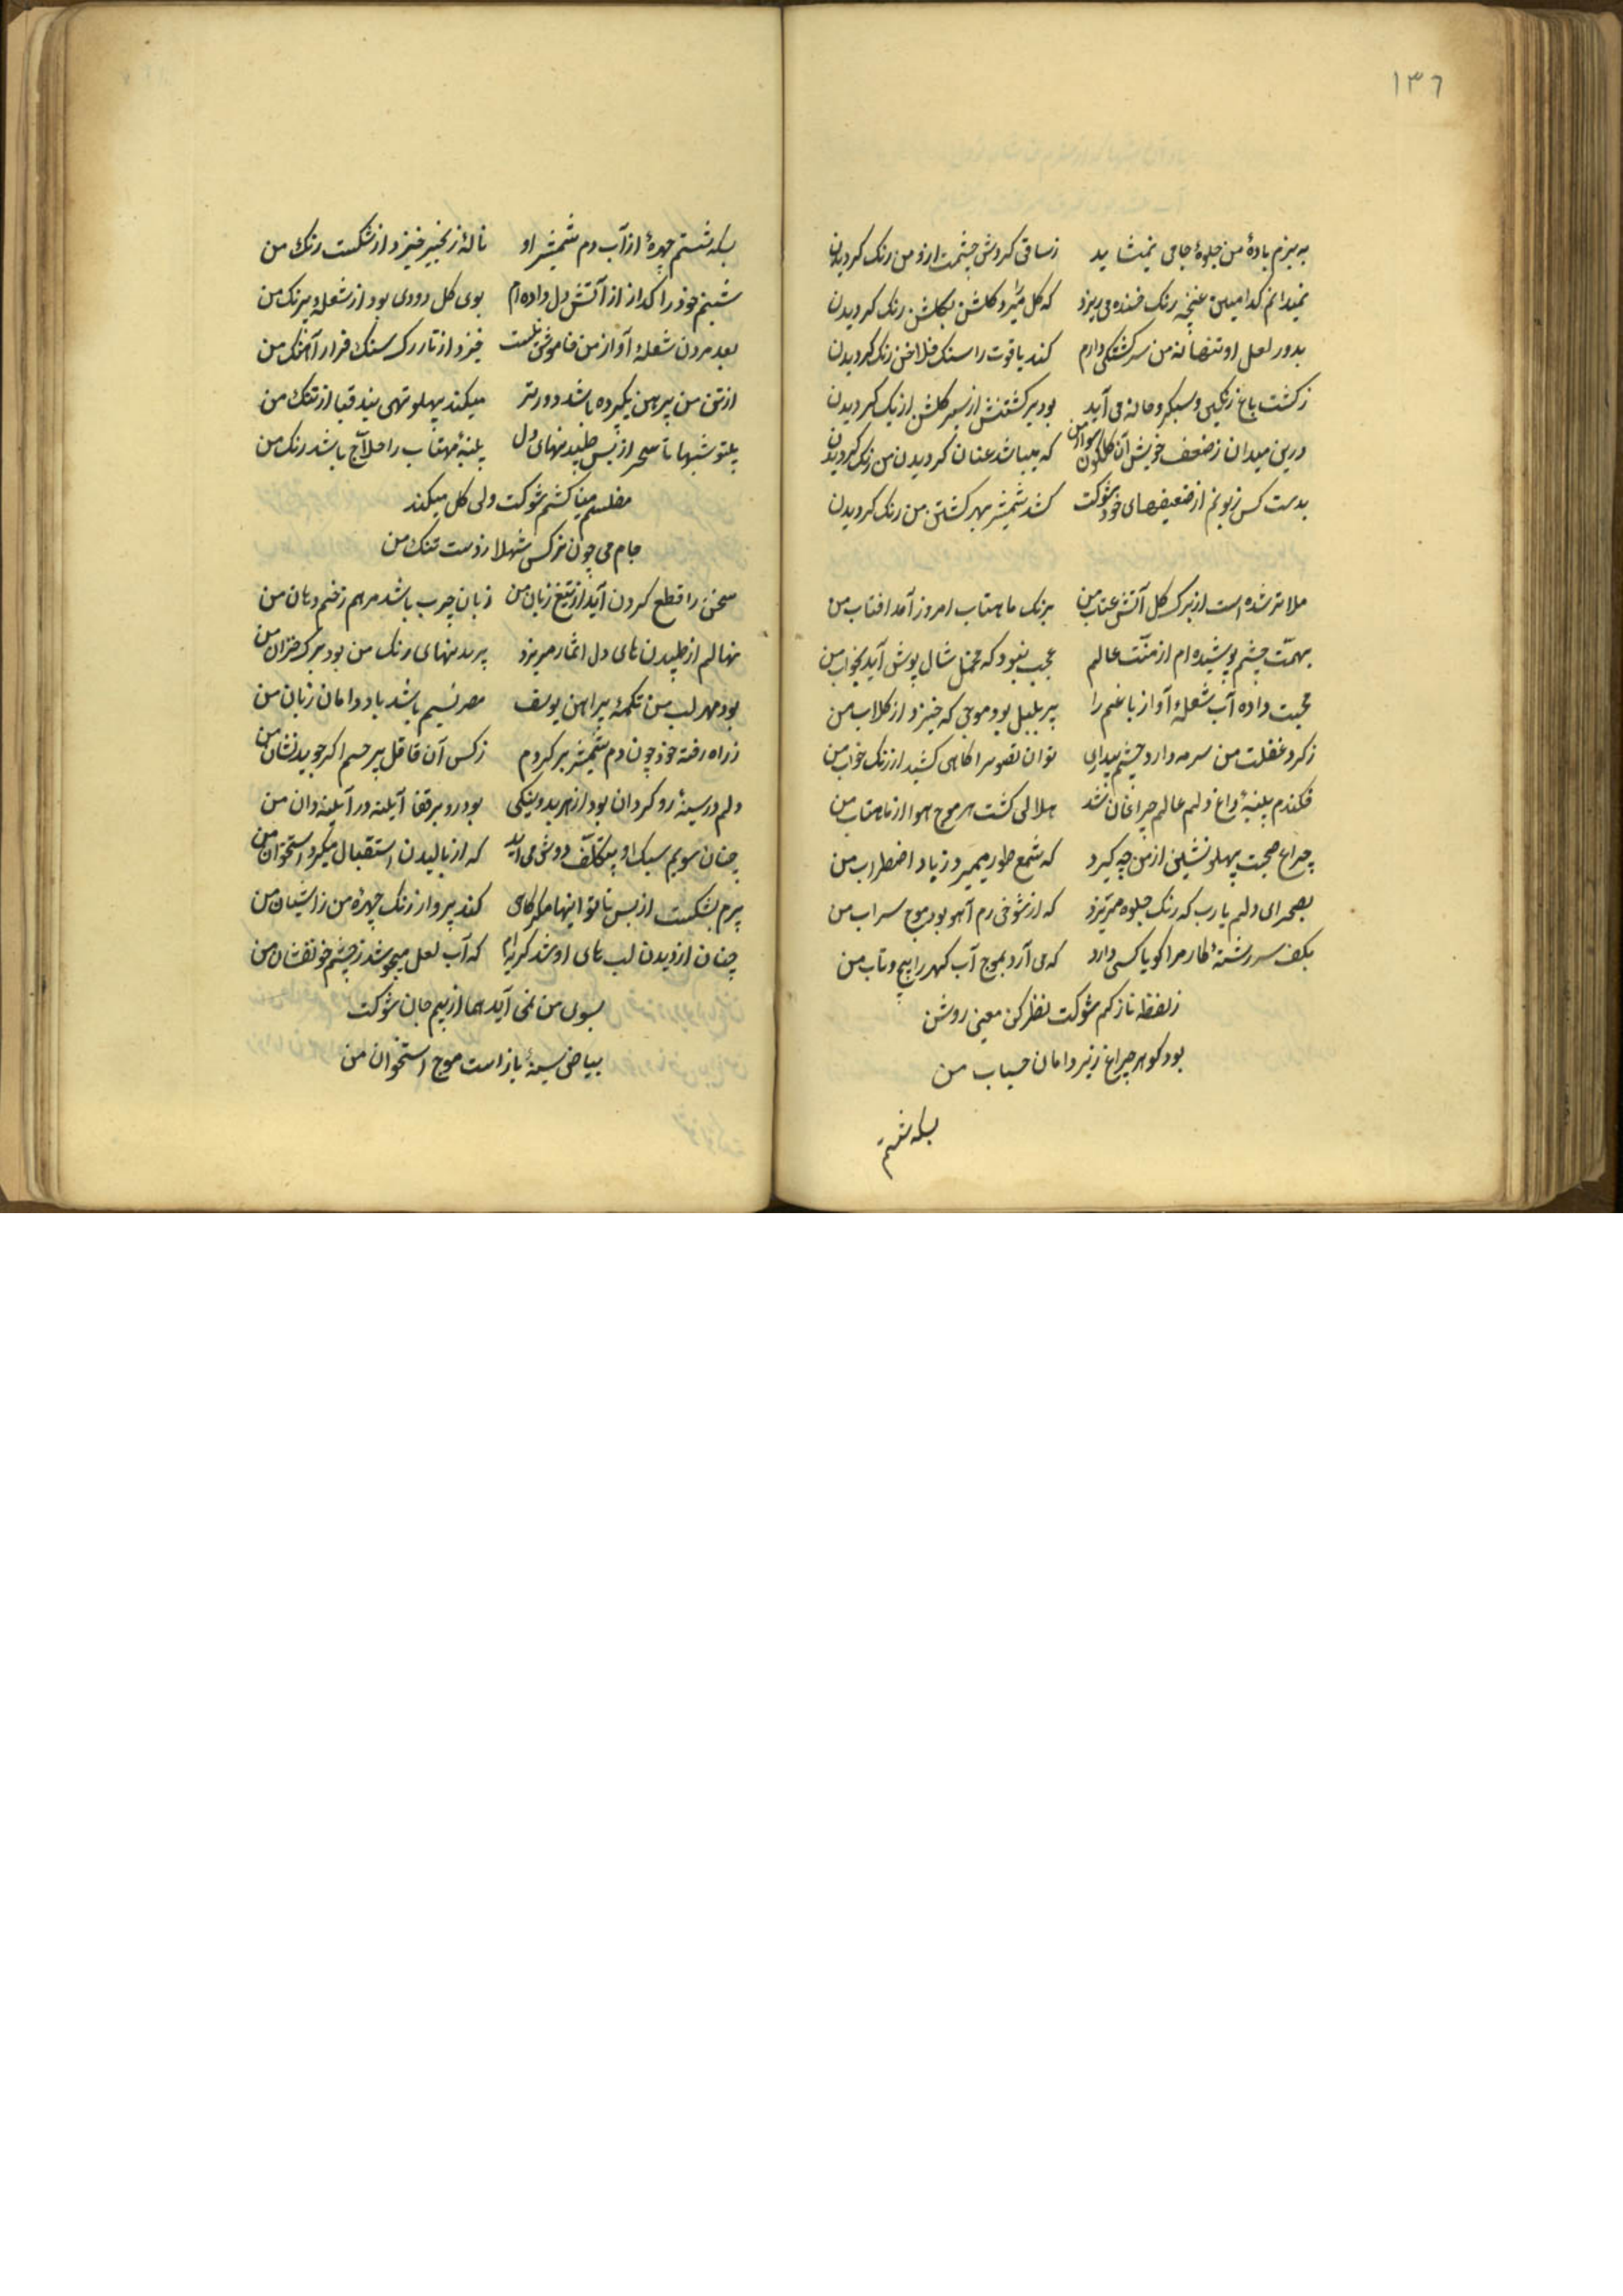 ١٣٦
به بزم باده من جلوهٔ جامی نمیشاید زساقی کردش چشمت ازو من رنک کردیدن
نمیدانم کدامین غنچه رنک خنده می ریزد که کل میرد کلشن بکلشن رنک کردیدن
بدور لعل او تنها نه من سرکشتکی دارم کند یاقوت را سنک فلاخن رنک کردیدن
زکشت باغ رنکین و سبکروحانه می آید بود برکشتنش از سیر کلشن رنک کردیدن
درین میدان زضعف خویش آن کلکون سوارم من که میباشد عنان کردیدن من رنک کردیدن
بدست کس زبونم از ضعیفیهای خود شوکت کشد شمشیر بهر کشتن من رنک کردیدن
ملایمتر شده است از برک کل آتش عتاب من برنک ماهتاب امروز آمد افتاب من
بهمت چشم پوشیده ام از منت عالم عجب نبود که مخمل شال پوش آید بخواب من
محبت داده آب شعلهٔ آواز باغم را پر بلبل بود موجی که خیزد از کلاب من
زکرد غفلت من سرمه دارد چشم بیداری توان تصویر اکاهی کشید از رنک خواب من
فکندم پنبهٔ داغ دلم عالم چراغان شد هلالی کشت هر موج هوا از ماهتاب من
چراغ صحبت پهلو نشینی از من چه کیرد که شمع طور میمیرد زباد اضطراب من
بصحرای دلم یارب که رنک جلوه میریزد که از شوخی رم آهو بود موج سراب من
بکف سررشتهٔ کار مرا کویا کسی دارد که می آرد بموج آب کهر را پیچ و تاب من
زلفظ نازکم شوکت نظر کن معنی روشن
بود کوهر چراغ زیر دامان حباب من
بسکه شستم
بسکه شستم چهرهٔ از آب دم شمشیر او نالهٔ زنجیر خیزد از شکست رنک من
شبنم خود را کداز از آتش دل داده ام بوی کل دودی بود از شعلهٔ بیرنک من
بعد مردن شعلهٔ آواز من خاموش نیست خیزد از تار رک سنک مزار آهنک من
از تن من پیرهن یکپرده باشد دورتر میکند پهلو تهی بند قبا از تنک من
پرتو شبها تا سحر از بس طپیدنهای دل پنبهٔ مهتاب را حلاج باشد رنک من
مفلسم مینا کشم شوکت ولی کل میکند
جام می چون نرکس شهلا زدست تنک من
سخن را قطع کردن آید از تیغ زبان من زبان چرب باشد مرهم زخم دهان من
نهالم از طپیدن های دل اثمار میریزد پریدنهای رنک من بود برک خزان من
بود مهر لب من تکمهٔ پیراهن یوسف مصر نسیم باشد باد دامان زبان من
زراه رفتهٔ خود چون دم شمشیر برکردم زکس آن قاتل بیرحم اکر جوید نشان من
دلم در سینهٔ روکردان بود از بهر بدوینکی بود رو بر قفا آینه در آینه دان من
چنان سویم سبک او بیتکلف دوش می آید که از بالیدن استقبال میکرد استخوان من
پرم بشکست از بس ناتوانیها بهر کامی کند پرواز رنک چهرهٔ من زاشیان من
چنان از دیدن لب های او شد کریه ام که آب لعل میجوشد زچشم خونفشان من
بسوی من نمی آید هما از بیم جان شوکت
بیاض سینهٔ باز است موج استخوان من